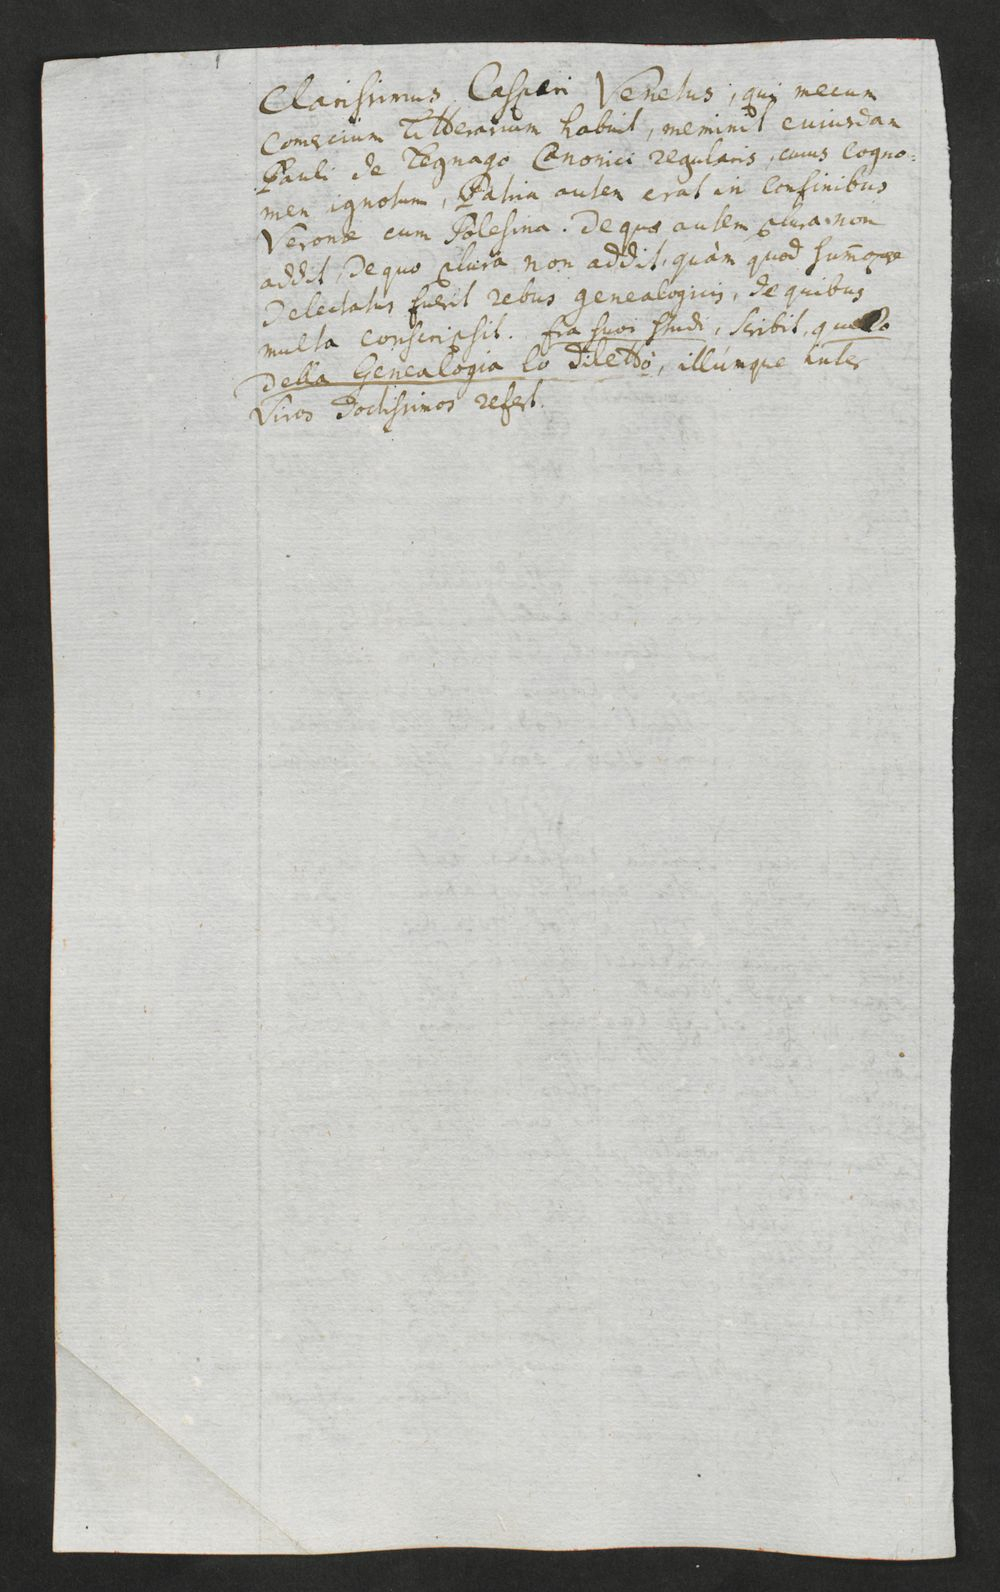 Clarissimus Caspari Venetus, qui mecum
Comercium litterarium habuit, meminit cuiusdam
Pauli de Legnago Canonici regularis, cuius cogno=
men ignotum, Patria autem erat in Confinibus
Veronæ cum Polesina. De quo autem plura non
addit, De quo plura non addit, quàm quod sum̃opere
Delectatus fuerit rebus genealogicis, de quibus
multa conscripsit. fra suoi studi, scribit, quello
della Genealogia lo dilettò, illúmque inter
Viros doctissimos refert.